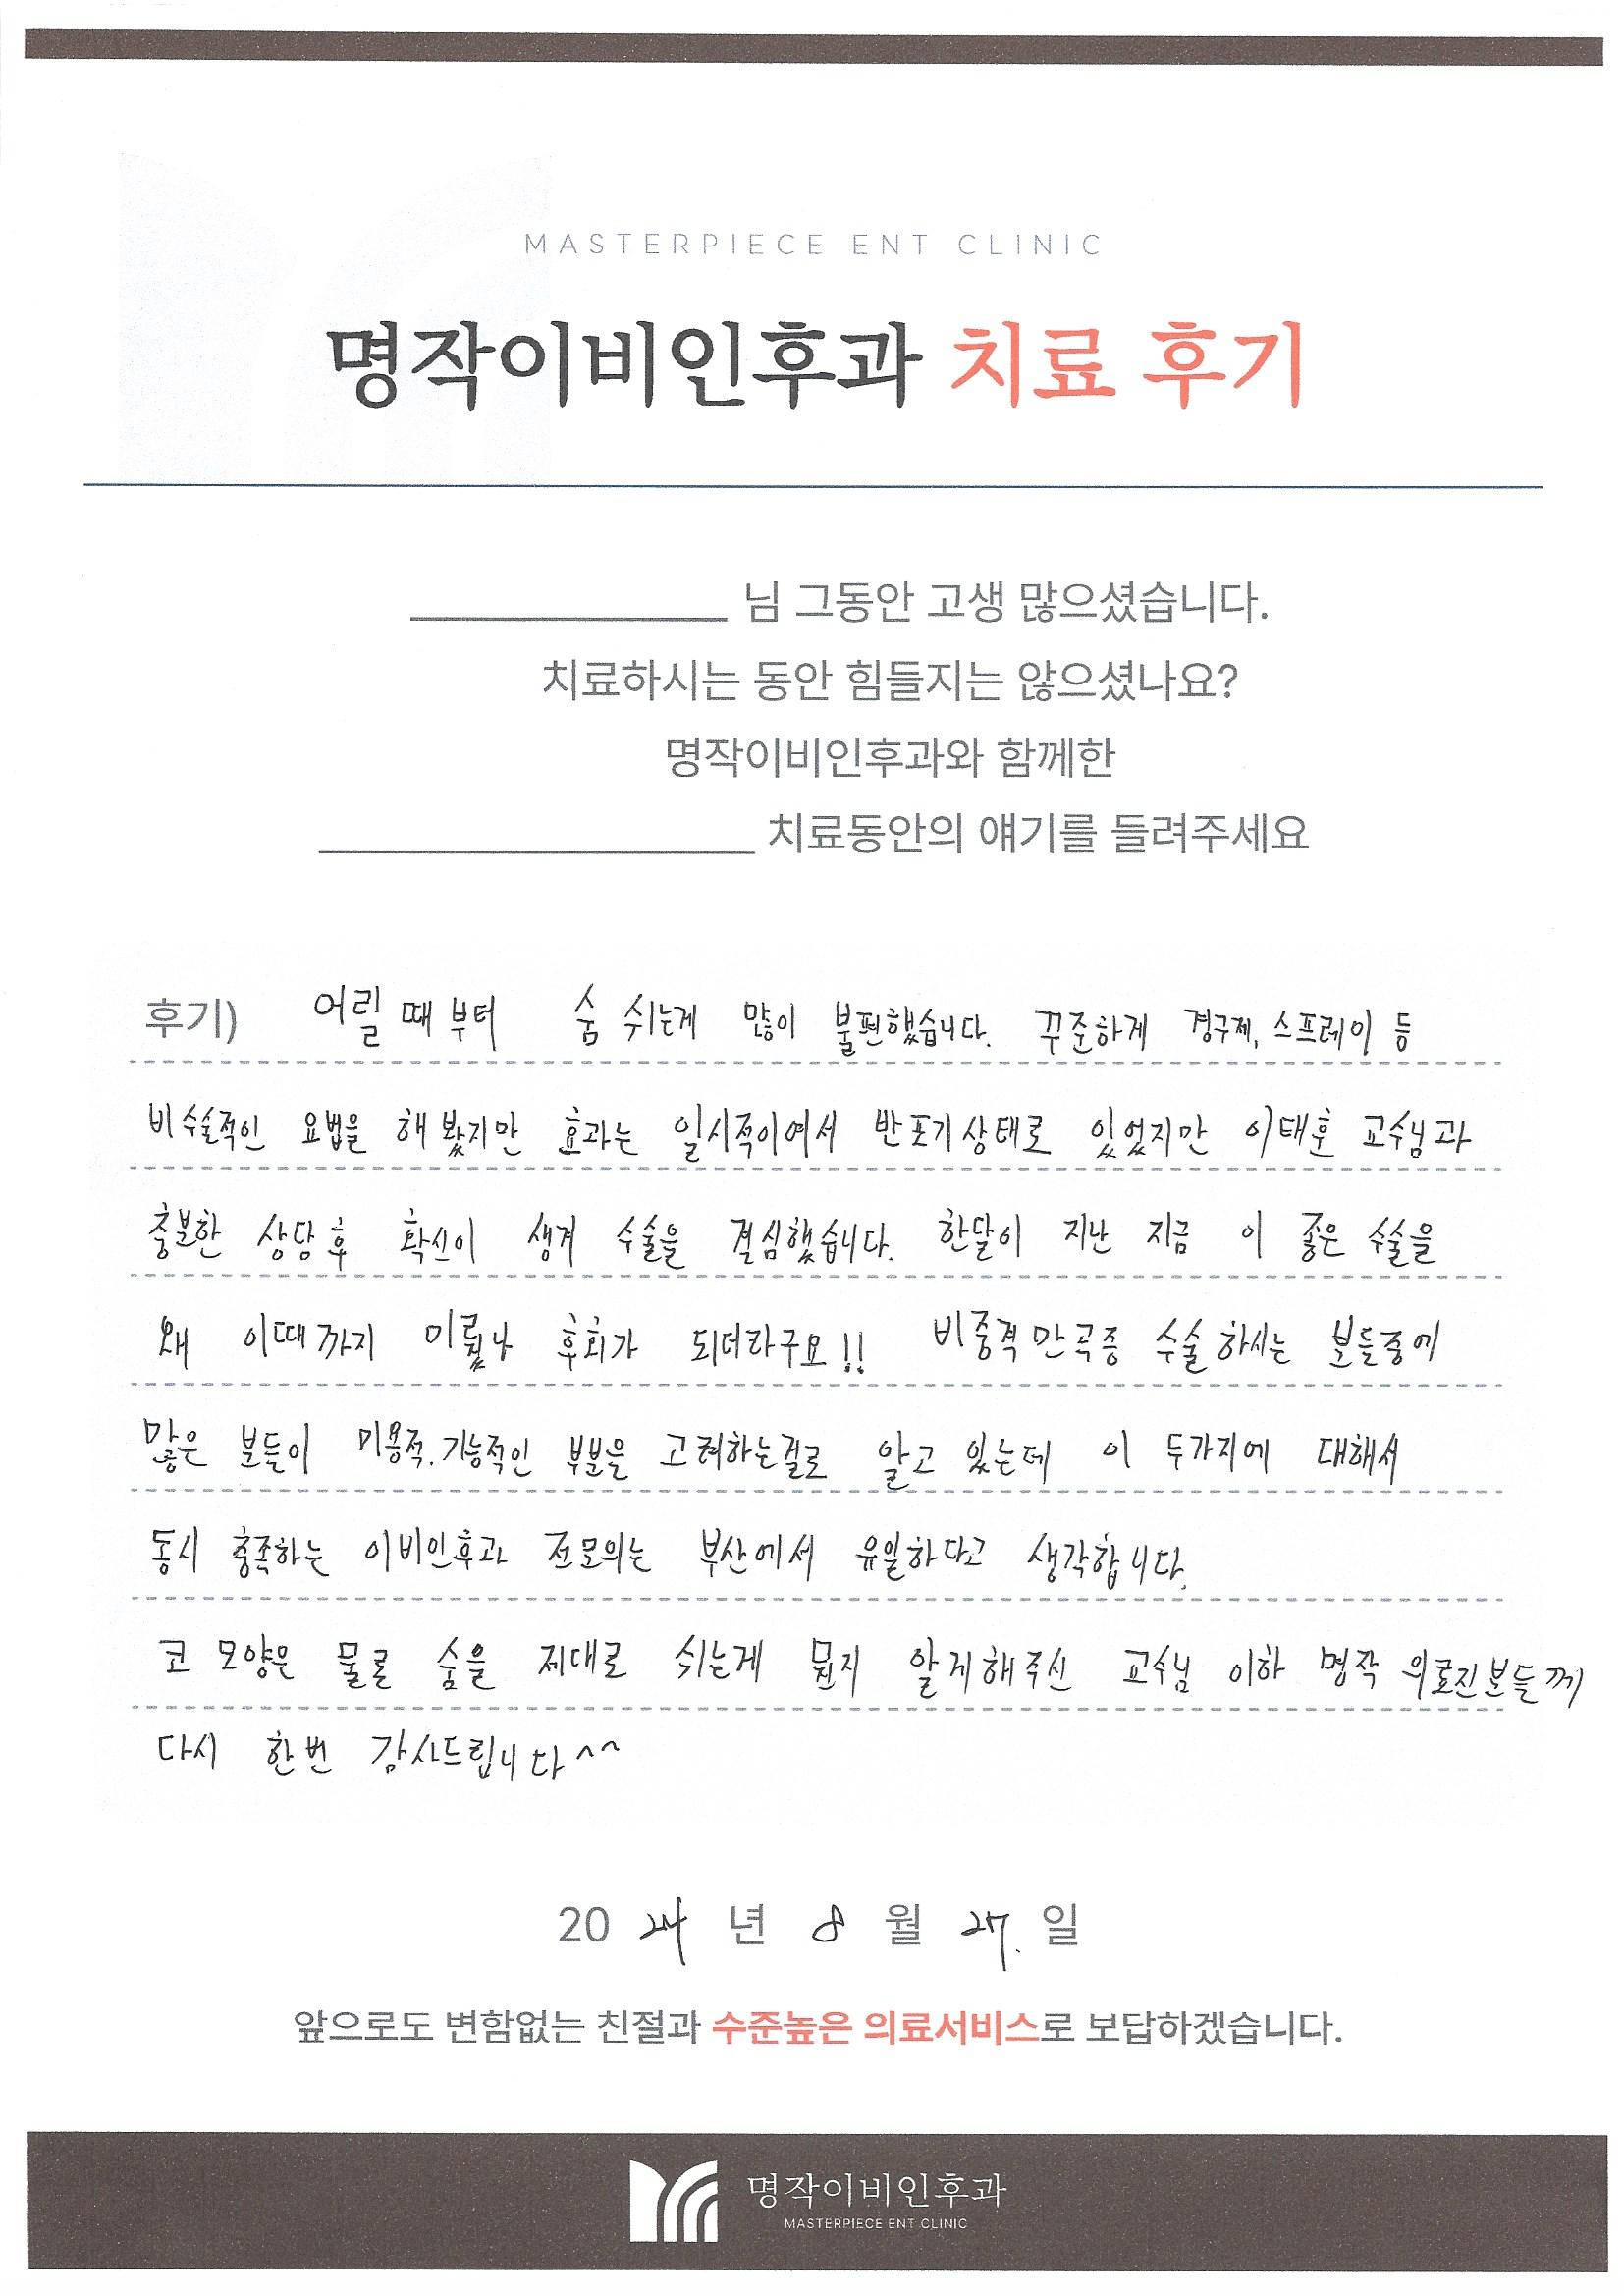 MASTERPIECE ENT CLINIC
명작이비인후과 치료 후기
님 그동안 고생 많으셨습니다.
치료하시는 동안 힘들지는 않으셨나요?
명작이비인후과와 함께한
치료동안의 얘기를 들려주세요
후기) 어릴때부터 숨 쉬는게 많이 불편했습니다. 꾸준하게 경구제, 스프레이 등
비수술적인 요법을 해봤지만 효과는 일시적이여서 반포기상태로 있었지만 이태훈 교수님과
충분한 상담후 확신이 생겨 수술을 결심했습니다. 한달이 지난 지금 이 좋은 수술을
왜 이때까지 미뤘나 후회가 되더라구요!! 비중격만곡증 수술하시는 분들중에
많은 분들이 미용적.기능적인 부분을 고려하는걸로 알고 있는데 이 두가지에 대해서
동시 충족하는 이비인후과 전문의는 부산에서 유일하다고 생각합니다.
코 모양은 물론 숨을 제대로 쉬는게 뭔지 알게해주신 교수님 이하 명작 의료진분들께
다시 한번 감사드립니다^^
2024 년 8 월 27. 일
앞으로도 변함없는 친절과 수준높은 의료서비스로 보답하겠습니다.
명작이비인후과
MASTERPIECE ENT CLINIC